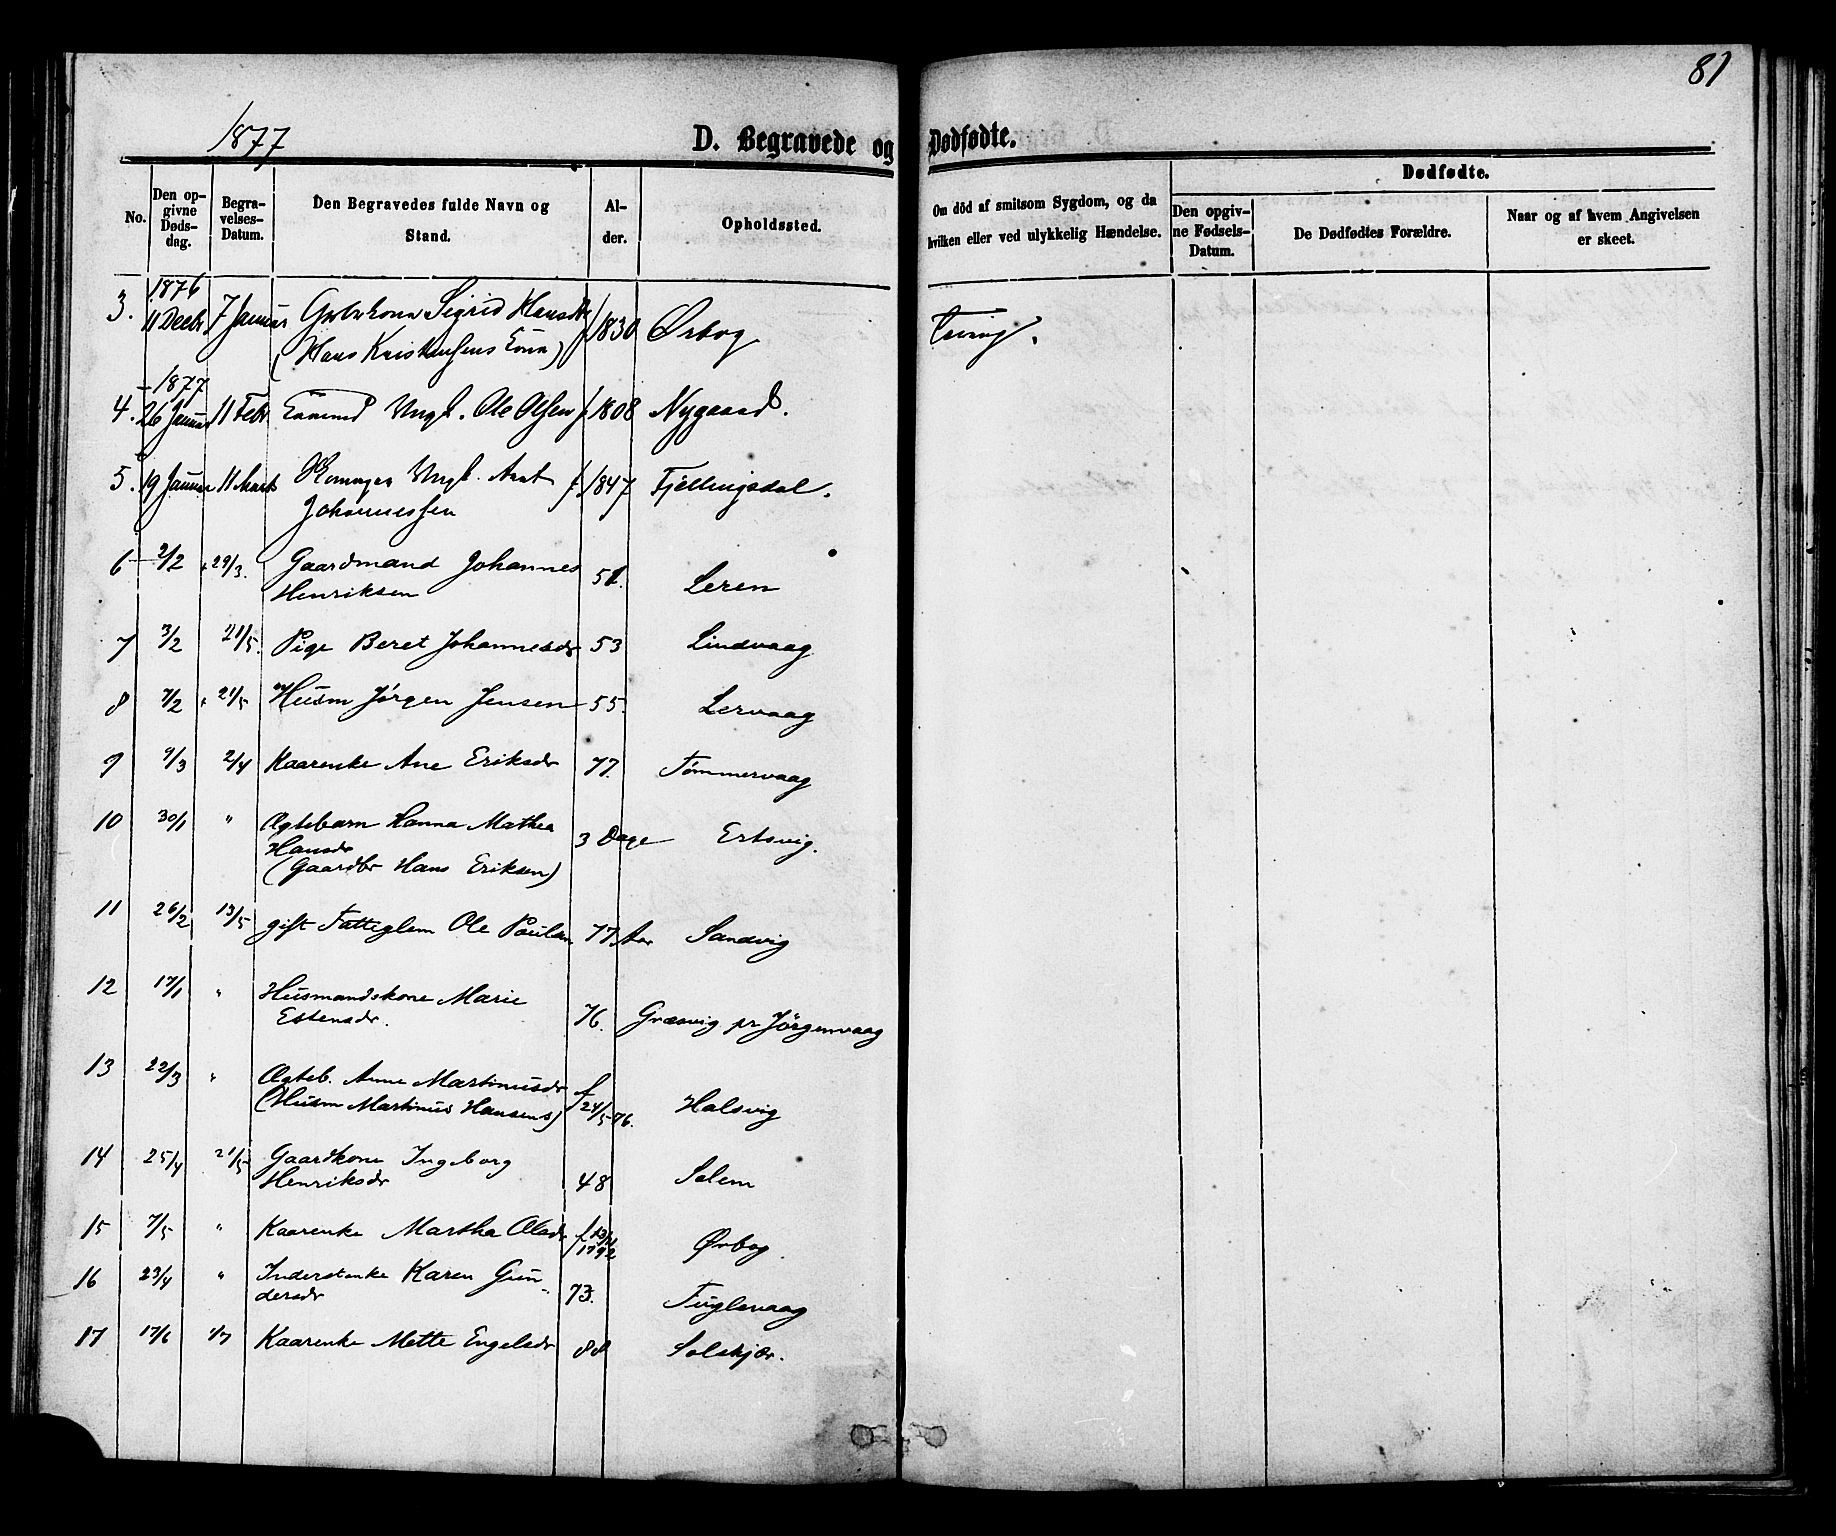 81
1877
D. Begravede og Dødfødte.
No.
Den opgivne Dødsdag.
Begravelses-Datum.
Den Begravedes fulde Navn og Stand.
Alder.
Opholdssted.
Om död af smitsom Sygdom, og da hvilken eller ved ulykkelig Hændelse.
Dødfødte.
Den opgivne Fødsels-Datum.
De Dødfødtes Forældre.
Naar og af hvem Angivelsen er skeet.
1876
3. 11 Decbr 7 Januar Sigrid Hansdtr f 1830 Ørbog
(Hans Kristensens Kone)
1877
4. 26 Januar 11 Febr Ungk. Ole Olsen f 1808 Nygaard.
5. 19 Januar 11 Marts Ungk. Arnt f 1847 Fjellingsdal.
Johannessen
6 2/2 29/3. Gaardmand Johannes 51. Leren
Henriksen
7 3/2 21/5. Pige Beret Johannesdr 53 Lindvaag
8 7/2 21/5 Husm Jørgen Jensen 55. Lervaag
9 9/3 2/4 Kaarenke Ane Eriksdr 77. Tømmervaag
10 30/1 " Ægtebarn Hanna Mathea 3 Dage Ertsvig.
Hansdr
(Gaardbr Hans Eriksen)
11 26/2 13/5 gift Fatteglem Ole Paulsen 77 Aar Sandvig
12 17/1 " Husmandskone Marie 76. Græsvig pr Jørgenvaag
Estensdr.
13 22/3 " Ægteb. Anne Martinusdr f 24/5-76. Halsvig
(Husm Martinus Hansens)
14 25/4 21/5 Gaardkone Ingeborg 48 Solem
Henriksdr
15 7/5 " Kaarenke Martha Olsdr f 1792 Ørbog
16 23/4 " Inderstenke Karen Gun- 73. Fuglevaag
dersdr
17 17/6 1/7 Kaarenke Mette Engelsdr 88 Solskjær.